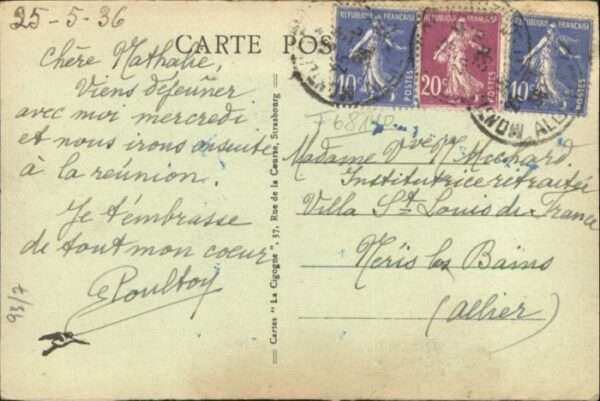 25-5-36
CARTE POS
Chère Nathalie,
Viens déjeuner
avec moi mercredi
et nous irons ensuite
à la réunion.
Je t'embrasse
de tout mon coeur
93/7
Cartes "La Cigogne", 37, Rue de la Course, Strasbourg
REPUBLIQUE FRANÇAISE
10c
POSTES
REPUBLIQUE FRANÇAISE
20c
POSTES
REPUBLIQUE FRANÇAISE
10c
POSTES
Madame Vve Michard
Institutrice retraitée
Villa St Louis de France
Néris les Bains
(Allier)